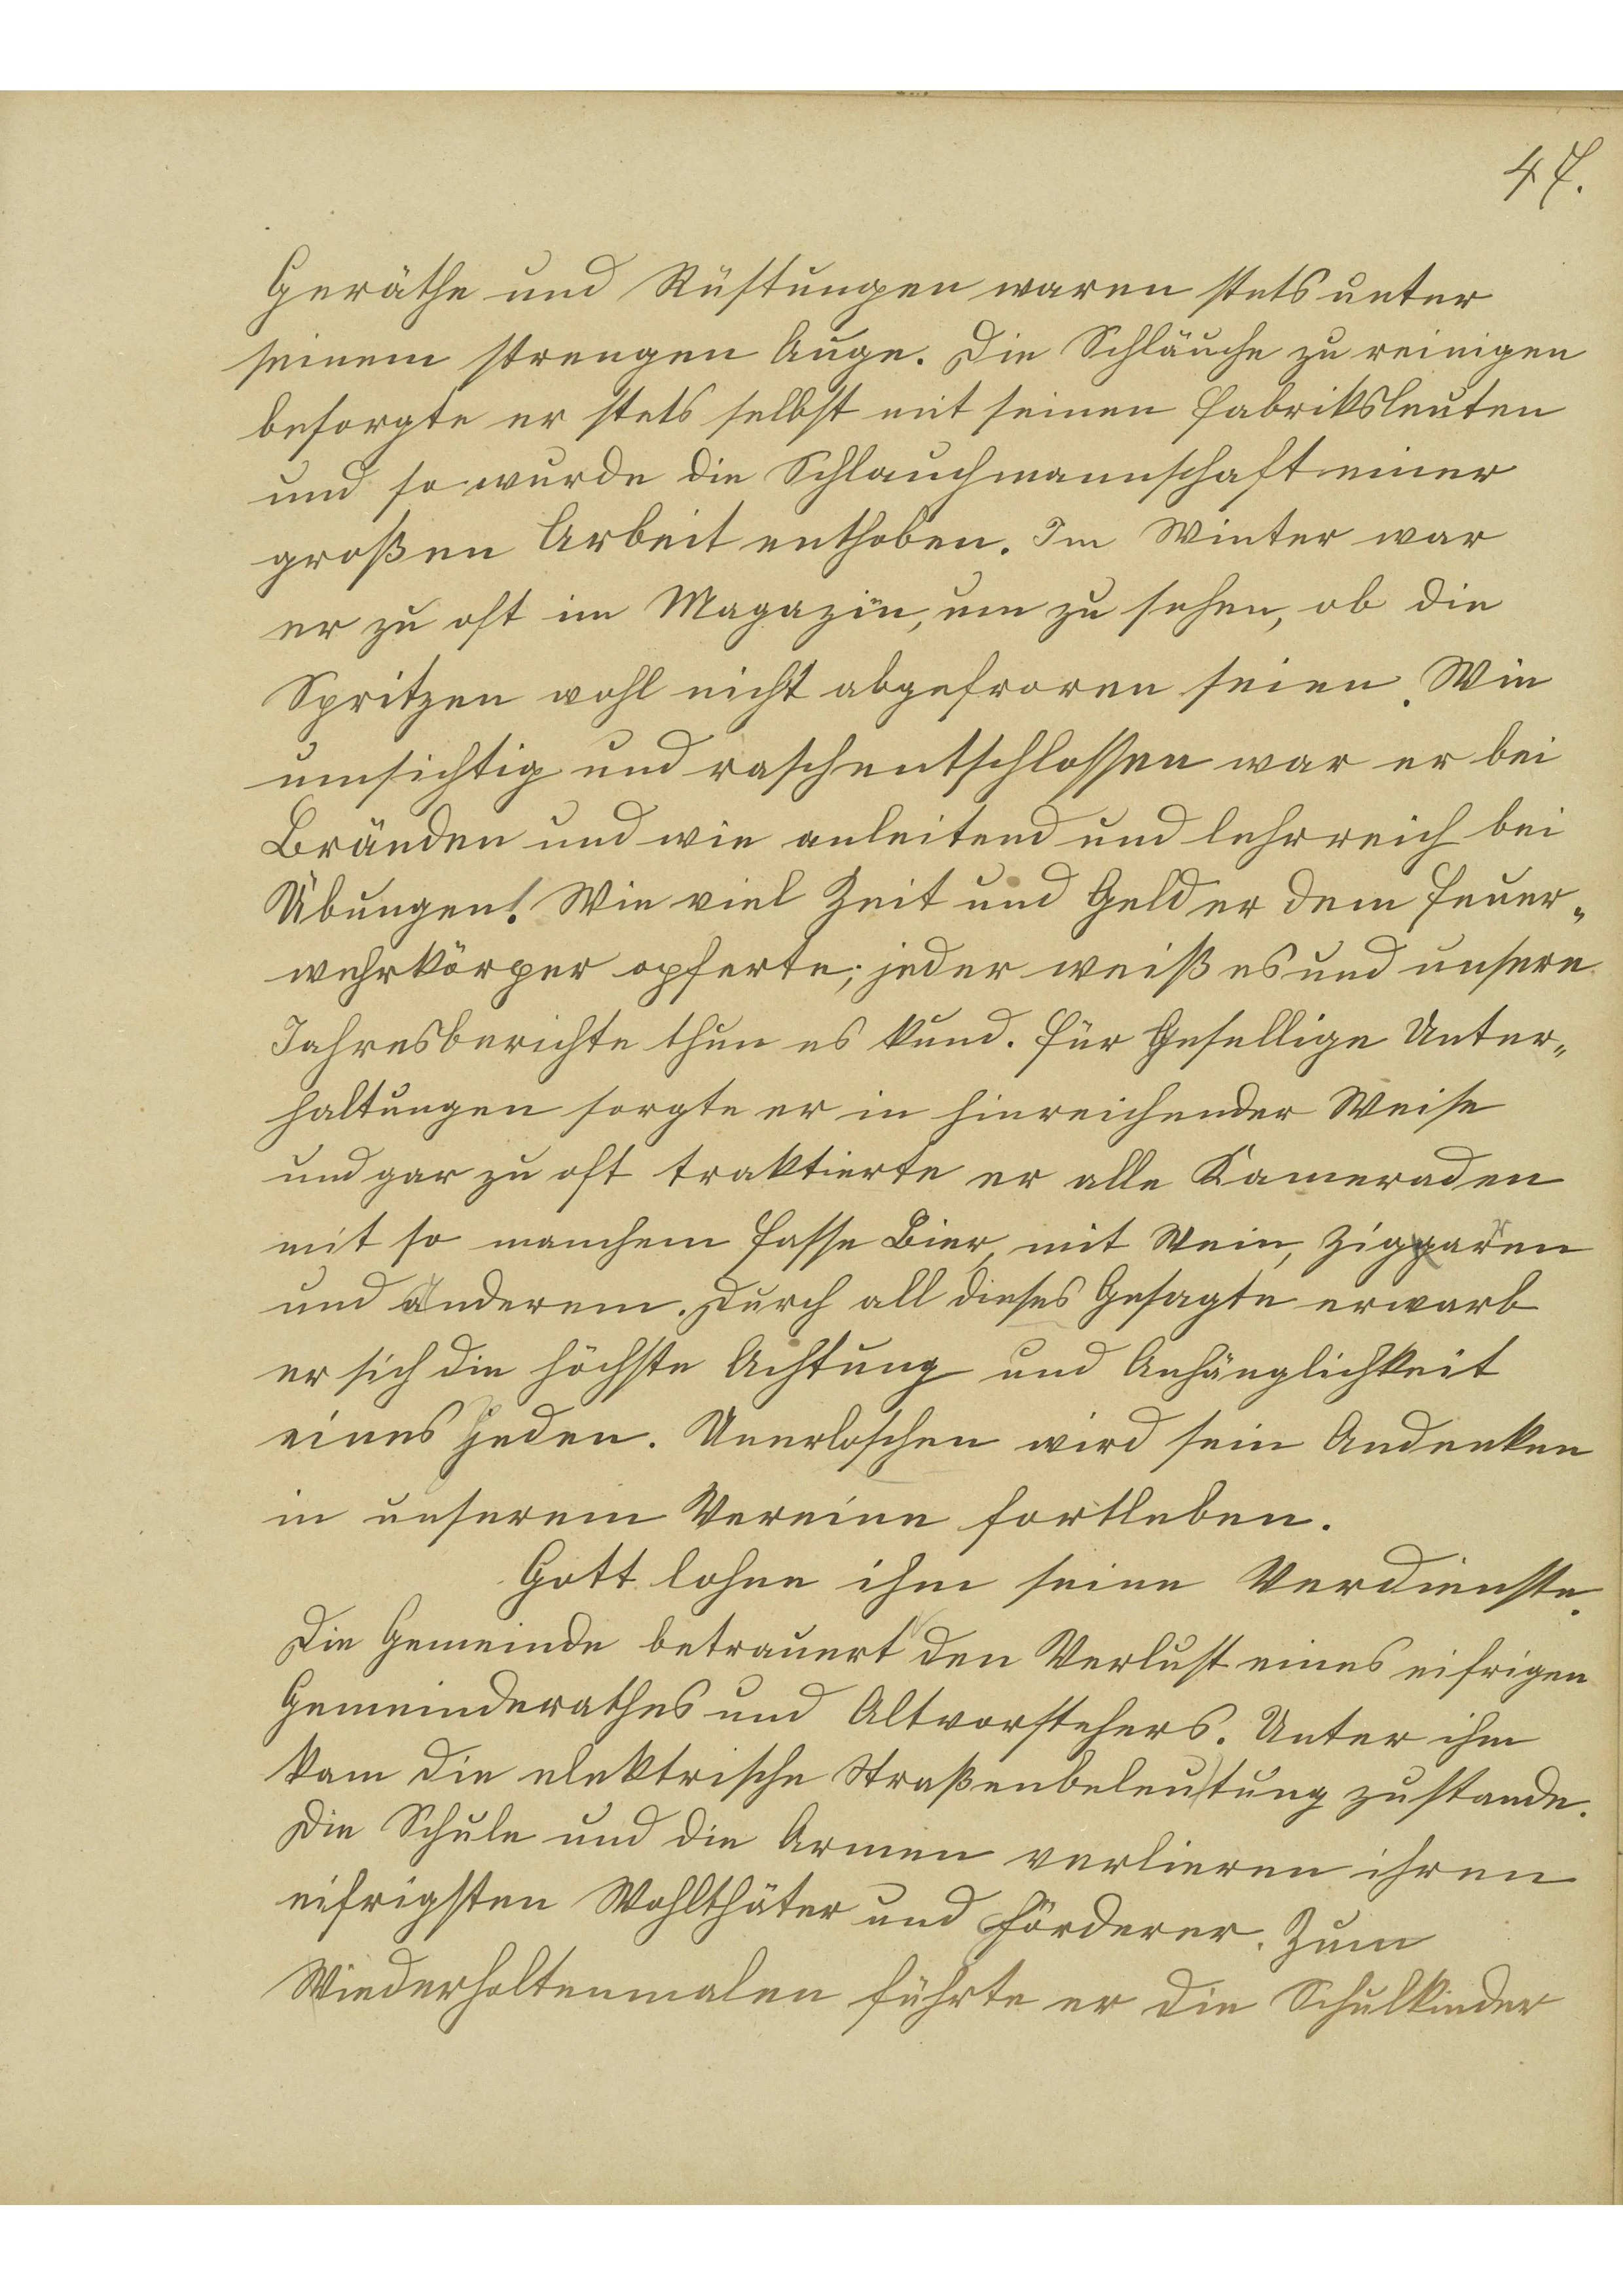 47.
Geräthe und Rüstungen waren stets unter
seinem strengen Auge. Die Schläuche zu reinigen
besorgte er stets selbst mit seinen Fabriksleuten
und so wurde die Schlauchmannschaft einer
großen Arbeit enthoben. Im Winter war
er zu oft im Magazin, um zu sehen, ob die
Spritzen wohl nicht abgefroren seien. Wie
umsichtig und raschentschlossen war er bei
Bränden und wie anleitend und lehrreich bei
Übungen! Wie viel Zeit und Geld er dem Feuer„
wehrkörper opferte; jeder weiß es und unsere
Jahresberichte thun es kund. Für Gesellige Unter„
haltungen sorgte er in hinreichender Weise
und gar zu oft traktierte er alle Kameraden
mit so manchem Fasse Bier, mit Wein, Ziggaren
und anderem. Durch all dieses Gesagte erwarb
er sich die höchste Achtung und Anhänglichkeit
eines Jeden. Unerloschen wird sein Andenken
in unserem Vereine fortleben.
Gott lohne ihm seine Verdienste.
Die Gemeinde betrauert den Verlust eines eifrigen
Gemeinderathes und Altvorstehers. Unter ihm
kam die elektrische Straßenbeleutung zustande.
Die Schule und die Armen verlieren ihren
eifrigsten Wohlthäter und Förderer. Zum
Wiederholtenmalen führte er die Schulkinder